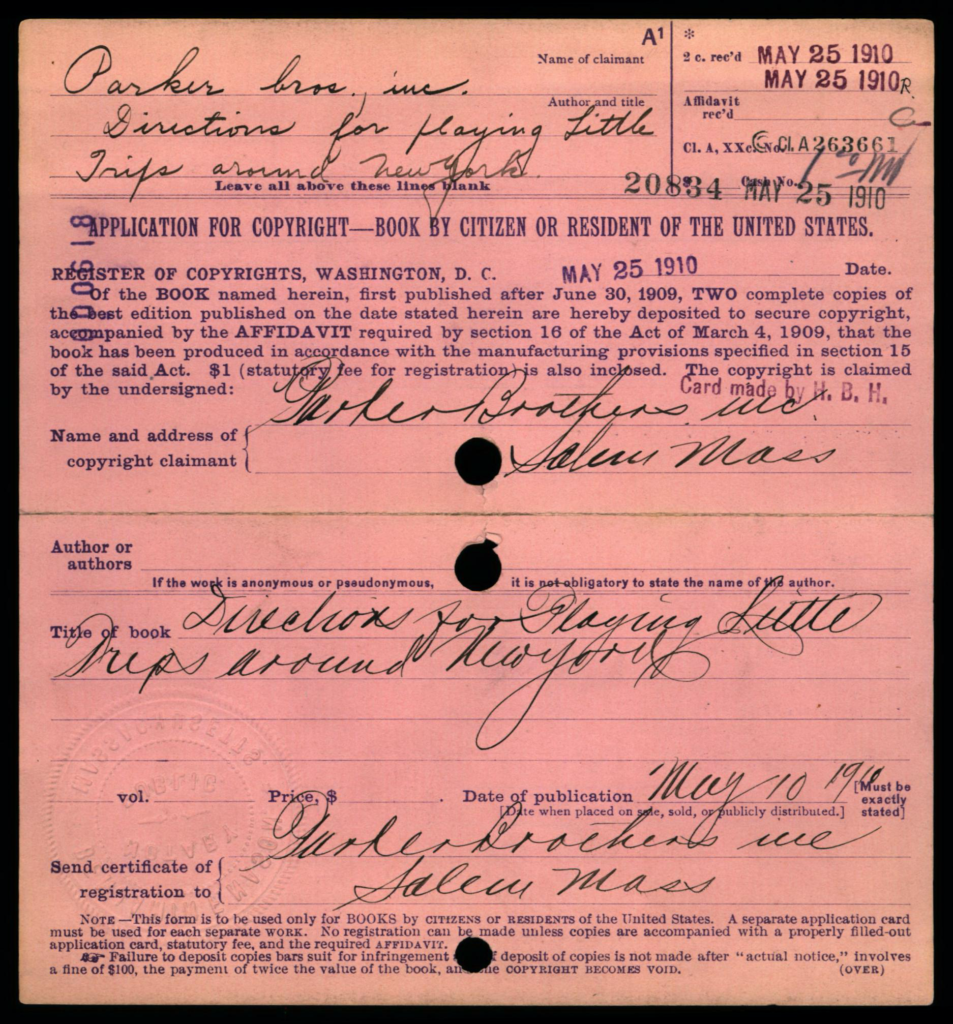 A¹
*
Name of claimant
2 c. rec'd MAY 25 1910
Parker bros., inc.
MAY 25 1910 R.
Author and title
Affidavit
rec'd
Directions for playing Little
Cl. A, XXc. No. © Cl A 263661
Trips around New York.
Leave all above these lines blank
20834
Cash No.
MAY 25 1910
APPLICATION FOR COPYRIGHT—BOOK BY CITIZEN OR RESIDENT OF THE UNITED STATES.
REGISTER OF COPYRIGHTS, WASHINGTON, D. C. MAY 25 1910 Date.
Of the BOOK named herein, first published after June 30, 1909, TWO complete copies of
the best edition published on the date stated herein are hereby deposited to secure copyright,
accompanied by the AFFIDAVIT required by section 16 of the Act of March 4, 1909, that the
book has been produced in accordance with the manufacturing provisions specified in section 15
of the said Act. $1 (statutory fee for registration) is also inclosed. The copyright is claimed
by the undersigned:
Card made by H. B. H.
Parker Brothers inc.
Name and address of
copyright claimant
Salem Mass
Author or
authors
If the work is anonymous or pseudonymous, it is not obligatory to state the name of the author.
Title of book Directions for Playing Little
Trips around New York
vol. Price, $ . Date of publication May 10 1910 [Must be
exactly
stated]
[Date when placed on sale, sold, or publicly distributed.]
Parker Brothers inc
Send certificate of
registration to
Salem Mass
NOTE—This form is to be used only for BOOKS by CITIZENS or RESIDENTS of the United States. A separate application card
must be used for each separate WORK. No registration can be made unless copies are accompanied with a properly filled-out
application card, statutory fee, and the required AFFIDAVIT.
Failure to deposit copies bars suit for infringement if deposit of copies is not made after "actual notice," involves
a fine of $100, the payment of twice the value of the book, and the COPYRIGHT BECOMES VOID. (OVER)